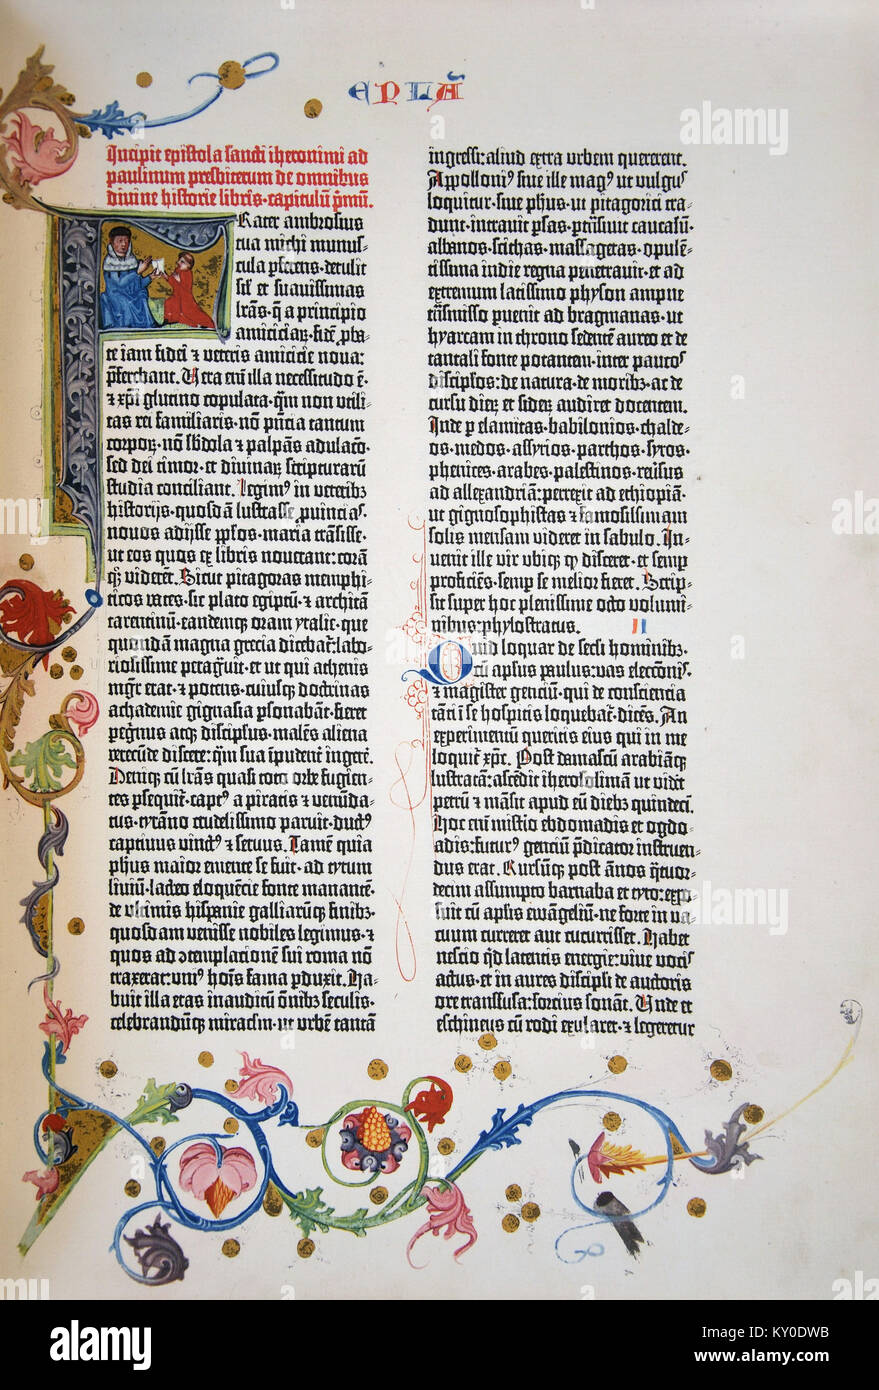 EPLÃ
Incipit epistola sancti iheronimi ad
paulinum presbiterum de omnibus
divine historie libris·capitulũ p̃mũ.
Frater ambrosius
tua michi munus-
cula p̃ferens·detulit
sil' et suavissimas
lr̃as·q̃ a principio
amiciciaꝝ·fidẽ ꝓba-
te iam fidei ⁊ veteris amicicie nova:
p̃ferebant. Vera eñi illa necessitudo ẽ·
⁊ xp̃i glutino copulata·q̃m non utili-
tas rei familiaris·nõ p̃ñcia tantum
corpoꝝ·nõ s̃bdola ⁊ palpãs adulacõ·
sed dei timor·et divinaꝝ scripturarũ
studia conciliant. Legimꝰ in veteribꝫ
historijs·quosdã lustrasse ꝓuincias·
novos adijsse p̃plos·maria trãsisse·
ut eos quos ex libris noverant: corã
qꝫ viderẽt. Sicut pitagoras memphi-
ticos vates·sic plato egiptũ·⁊ architã
tarentinũ·eandemqꝫ oram ytalie·que
quondã magna grecia dicebat̃: labo-
riosissime peragrauit·et ut qui athenis
mg̃r erat·⁊ potens·cuiusqꝫ doctrinas
achademie gignasia p̃sonabãt·fieret
pegrinus atqꝫ discipulus·malẽs aliena
verecũde discere: q̃m sua ĩpudent̃ ingerẽ.
Deniqꝫ cũ lr̃as quasi toto orbe fugien-
tes ꝑsequit̃·captꝰ a piratis ⁊ venũda-
tus·tyrãno crudelissimo paruit·ductꝰ
captivus vinctꝰ ⁊ seruus. Tamẽ quia
ph̃us maior emente se fuit·ad tytum
liuiũ·lacteo eloquẽcie fonte manantẽ·
de ultimis hispanie galliarũqꝫ finibꝫ·
quosdam venisse nobiles legimus·⁊
quos ad ↄtemplacionẽ sui roma nõ
traxerat: unius hoĩs fama ꝑduxit. Ha-
buit illa etas inauditũ õnibꝫ seculis·
celebrandũqꝫ miraclm·ut urbẽ tantã
ingressi: aliud extra urbem quererent.
Appolloniꝰ sive ille magꝰ ut vulgus
loquitur·sive ph̃us·ut pitagorici tra-
dunt·intravit ꝑsas·ꝑtrãsivit caucasũ·
albanos·scithas·massagetas·opulẽ-
tissima indie regna penetravit·et ad
extremum latissimo physon ampne
trãsmisso ꝑuenit ad bragmanas·ut
hyarcam in throno sedentẽ aureo et de
tantali fonte potantem·inter paucos
discipl̃os: de natura·de moribꝫ·ac de
cursu dieꝝ et sideꝝ audiret docentem.
Inde ꝑ elamitas·babilonios·chalde-
os·medos·assyrios·parthos·syros·
phenices·arabes·palestinos·reũsus
ad allexandriã: perrexit ad ethiopiã·
ut gignosophistas ⁊ famosissimam
solis mensam videret in sabulo. In-
venit ille vir ubiqꝫ qď disceret·et semꝑ
proficiẽs·semꝑ se melior fieret. Scrip-
sit super hoc plenissime octo volumi-
nibus: phylostratus. II
Quid loquar de sec̃li hominibꝫ·
cũ apl̃us paulus: vas eleccõis·
⁊ magister genciũ·qui de consciencia
tãti ĩ se hospitis loquebat̃·dicẽs. An
experimentũ queritis eius qui in me
loquit̃ xp̃c. Post damascũ arabiãqꝫ
lustratã: ascẽdit iherosolimã ut vidẽt
petrũ ⁊ mãsit apud eũ diebꝫ quindecĩ.
Hoc eñi misterio ebdomadis et ogdo-
adis: futurꝰ genciũ p̃dicator instruen-
dus erat. Rursũqꝫ post ãnos q̃tuor-
decim assumpto barnaba et tyto: expo-
suit cũ apl̃is ewãgeliũ·ne forte in va-
cuum curreret aut cucurrisset. Habet
nescio qď latentis energie: vive vocis
actus·et in aures discipl̃i de auctoris
ore transfusa: forcius sonãt. Unde et
eschineus cũ rodi exularet·⁊ legeretur
alamy
Image ID: KY0DWB
www.alamy.com